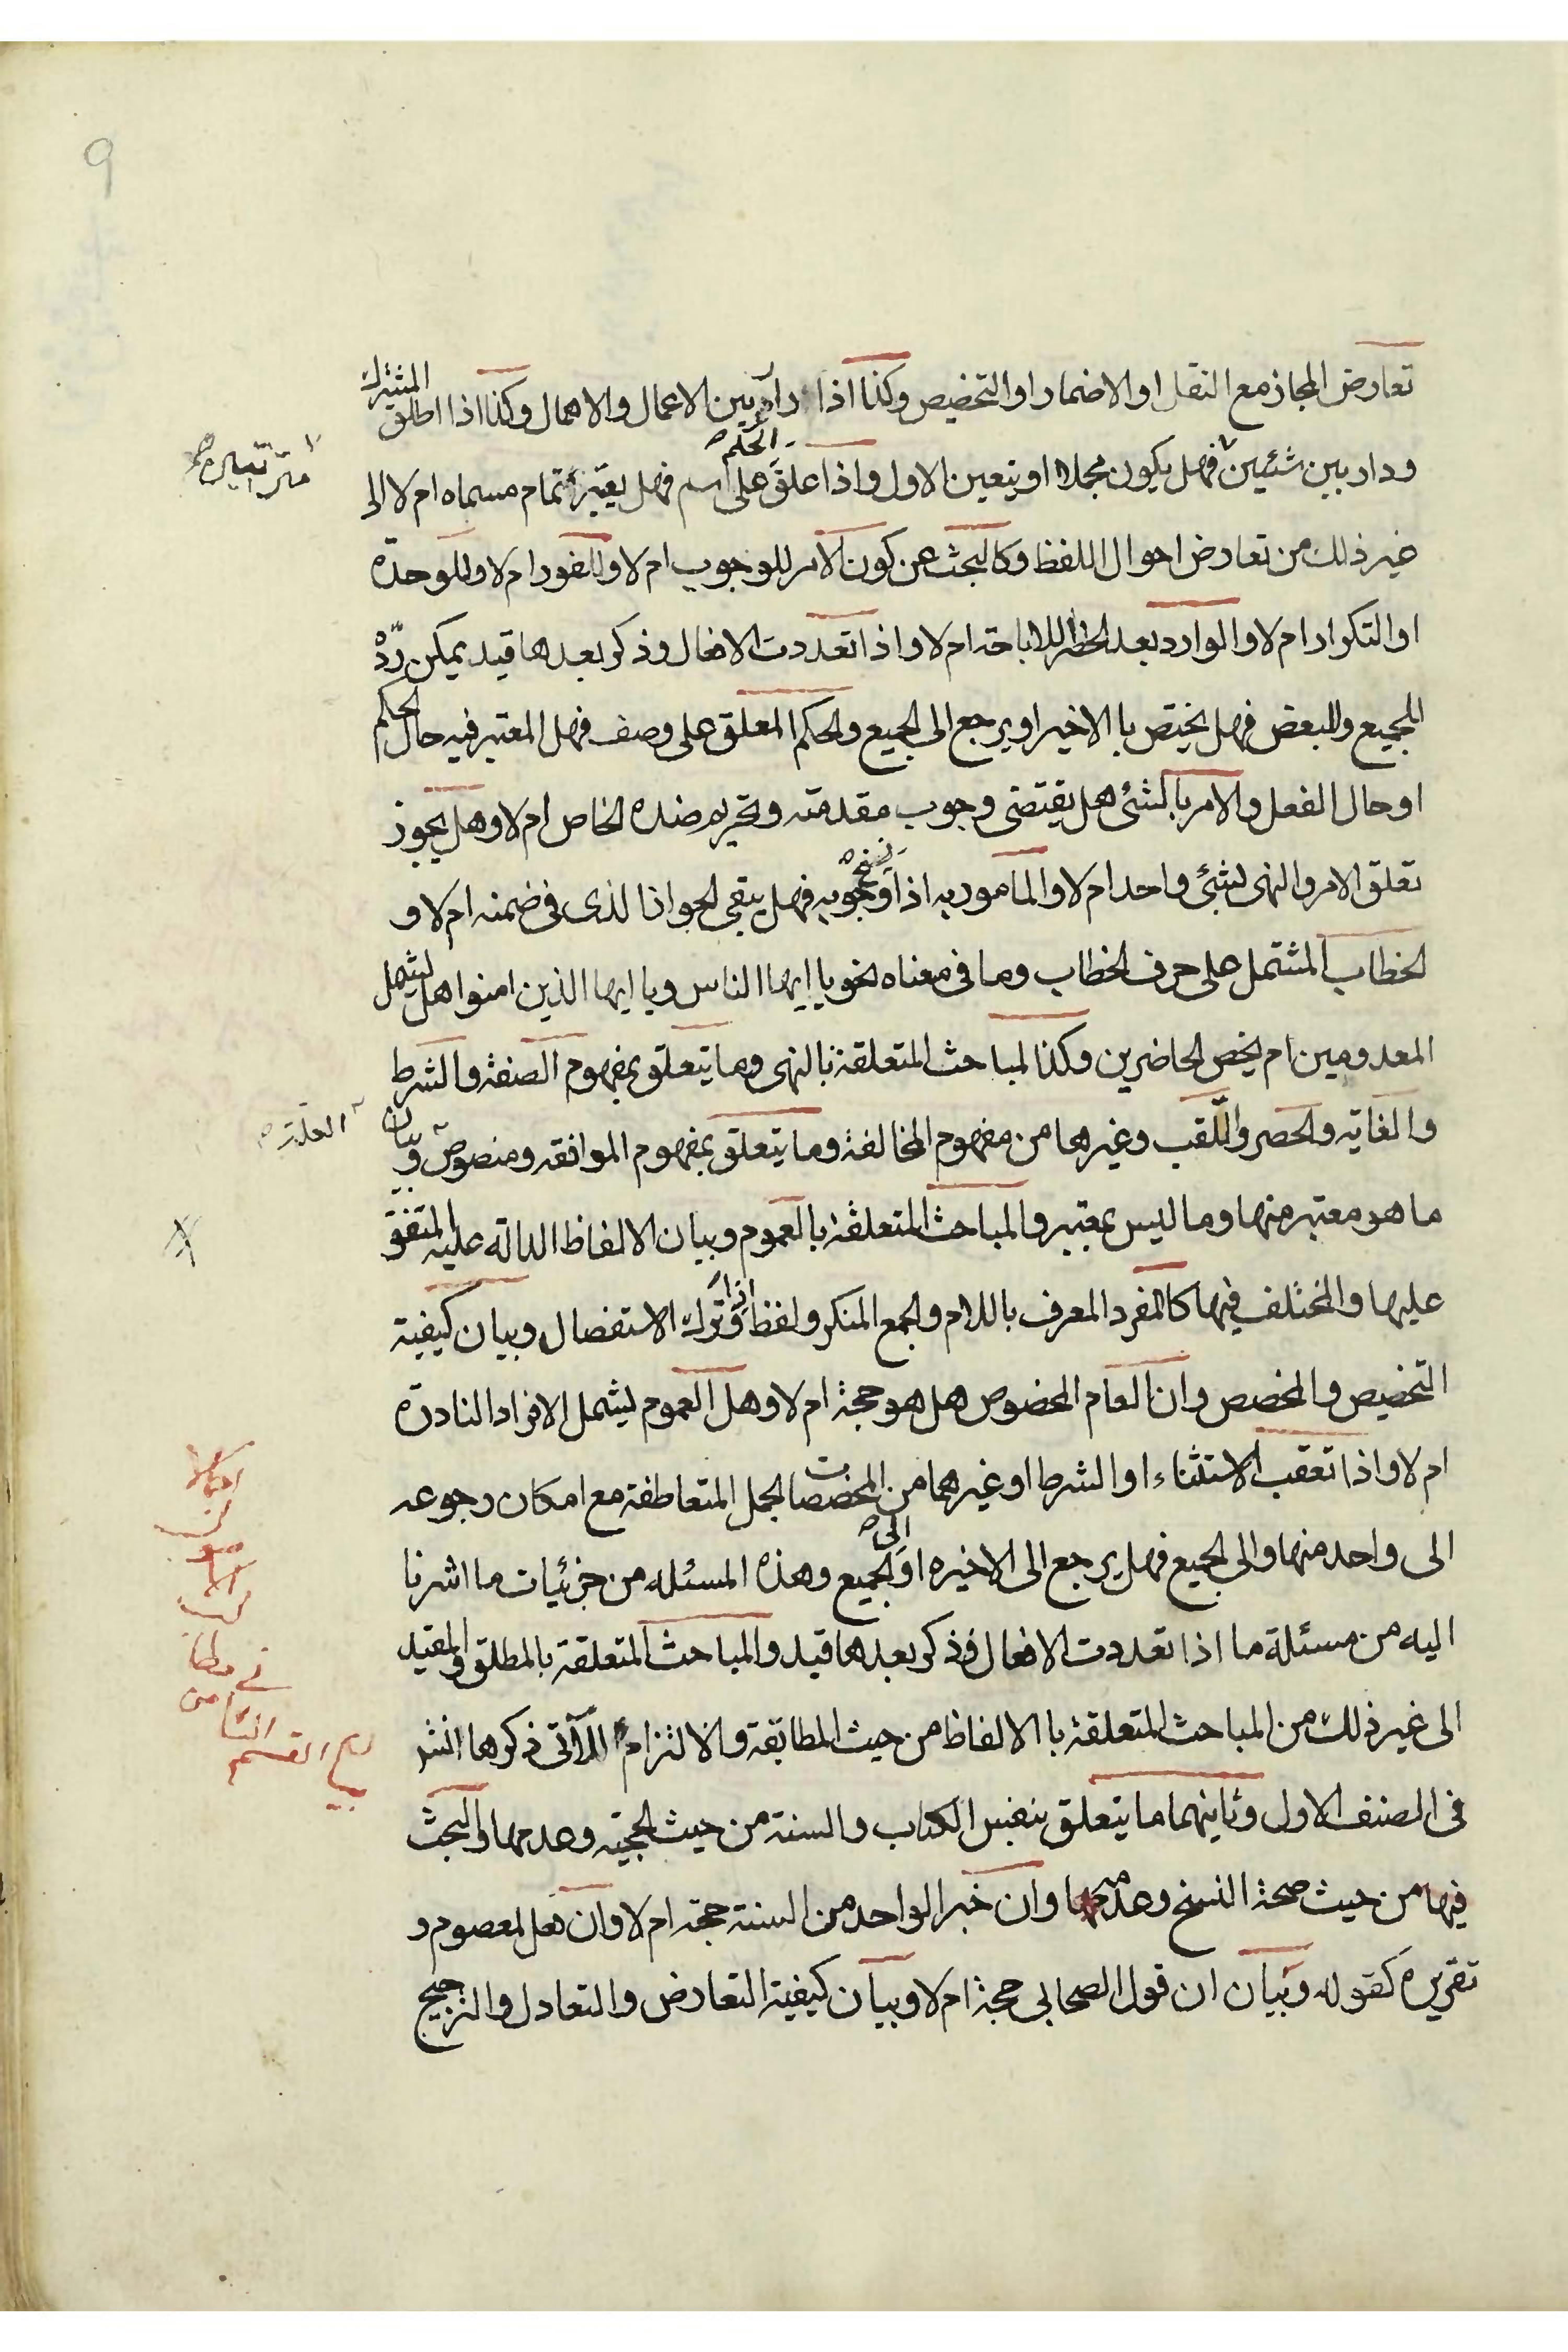 9
تعارض المجاز مع النقل او الاضمار او التخصيص وكذا اذا دار بين الاعمال والاهمال وكذا اذا اطلق المشترك
ودار بين شئيين فهل يكون مجملا او يتعين الاول واذا علق الحكم على اسم فهل يعتبر تمام مسماه ام لا الى
غير ذلك من تعارض احوال اللفظ وكالبحث عن كون الامر للوجوب ام لا وللفور ام لا وللوحدة
او التكرار ام لا والوارد بعد الحظر للاباحة ام لا واذا تعددت الافعال وذكر بعدها قيد يمكن ردّه
للجميع وللبعض فهل يختص بالاخير او يرجع الى الجميع والحكم المعلق على وصف فهل المعتبر فيه حال الحكم
او حال الفعل والامر بالشئ هل يقتضى وجوب مقدمته وتحريم ضده الخاص ام لا وهل يجوز
تعلق الامر والنهى لشئ واحد ام لا والمامور به اذا نسخ وجوبه فهل يبقى الجواز الذى فى ضمنه ام لا و
الخطاب المشتمل على حرف الخطاب وما فى معناه نحو يا ايها الناس ويا ايها الذين امنوا هل يشمل
المعدومين ام يخص الحاضرين وكذا المباحث المتعلقة بالنهى وما يتعلق بمفهوم الصفة والشرط
والغاية والحصر واللّقب وغيرها من مفهوم المخالفة وما يتعلق بمفهوم الموافقه ومنصوص وبيان
العلة
ما هو معتبر منها وما ليس بمعتبر والمباحث المتعلقة بالعموم وبيان الالفاظ الدالة عليه المتفق
عليها والمختلف فيها كالمفرد المعرف باللام والجمع المنكر ولفظ اذا وترك الاستفصال وبيان كيفية
التخصيص والمخصص وان العام المخصوص هل هو حجة ام لا وهل العموم يشمل الافراد النادرة
ام لا واذا تعقب الاستثناء او الشرط او غيرهما من المخصصات الجمل المتعاطفة مع امكان رجوعه
الى واحد منها والى الجميع فهل يرجع الى الاخيره او الى الجميع وهذه المسئله من جزئيات ما اشرنا
اليه من مسئلة ما اذا تعددت الافعال فذكر بعدها قيد والمباحث المتعلقة بالمطلق والمقيد
الى غير ذلك من المباحث المتعلقة با الالفاظ من حيث المطابقة والالتزام اللآتى ذكرها انشر
فى المصنف الاول وثانيهما ما يتعلق بنفس الكتاب والسنة من حيث الحجية وعدمها والبحث
فيها من حيث صحة النسخ وعدمها وان خبر الواحد من السنة حجة ام لا وان فعل المعصوم و
تقريره كقوله وبيان ان قول الصحابى حجة ام لا وبيان كيفية التعارض والتعادل والترجيح